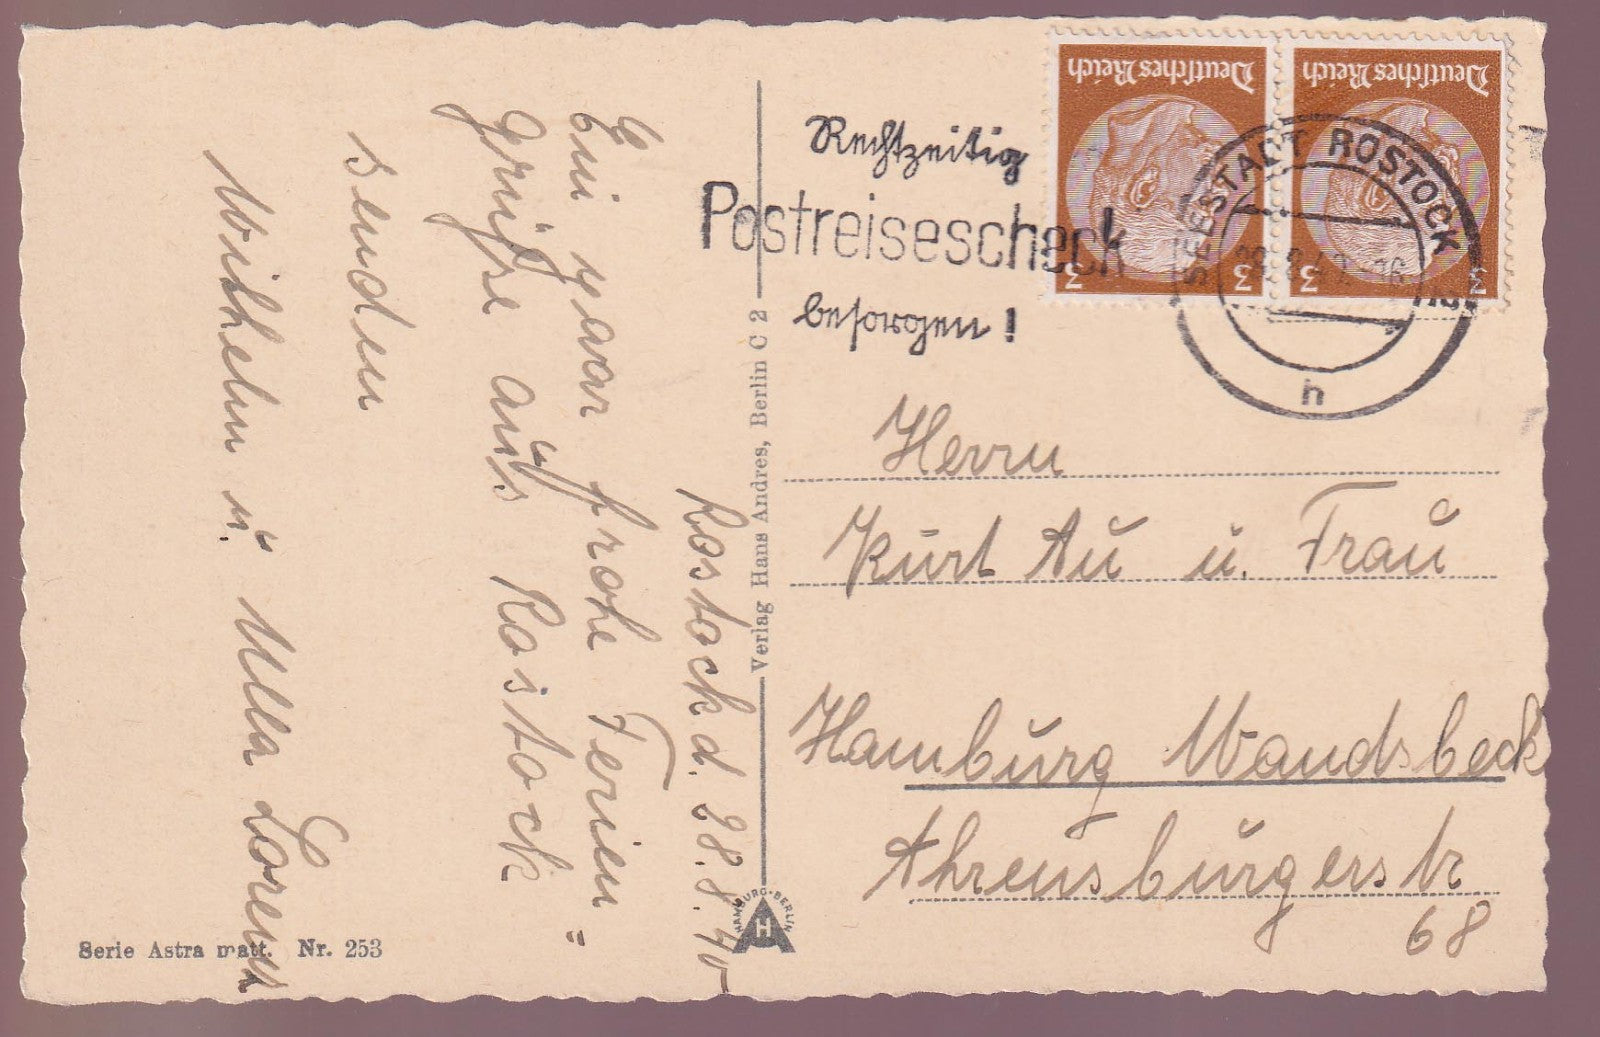 Deutsches Reich
3
3
Deutsches Reich
3
3
SEESTADT ROSTOCK
h
Rechtzeitig
Postreisescheck
besorgen!
Rostock d. 28.8.40
Ein paar frohe Ferien=
grüße aus Rostock
senden
Wilhelm u. Ulla Lorenz
Herrn
Kurt Au u. Frau
Hamburg Wandsbeck
Ahrensburgerstr
68
Verlag Hans Andres, Berlin C 2
HAMBURG·BERLIN
H
Serie Astra matt. Nr. 253